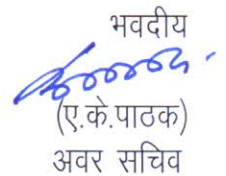 भवदीय
(ए.के.पाठक)
अवर सचिव